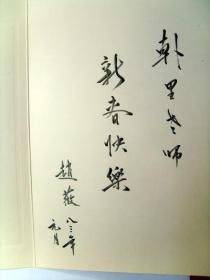 老师
新春快樂
趙薇
八三年
元月